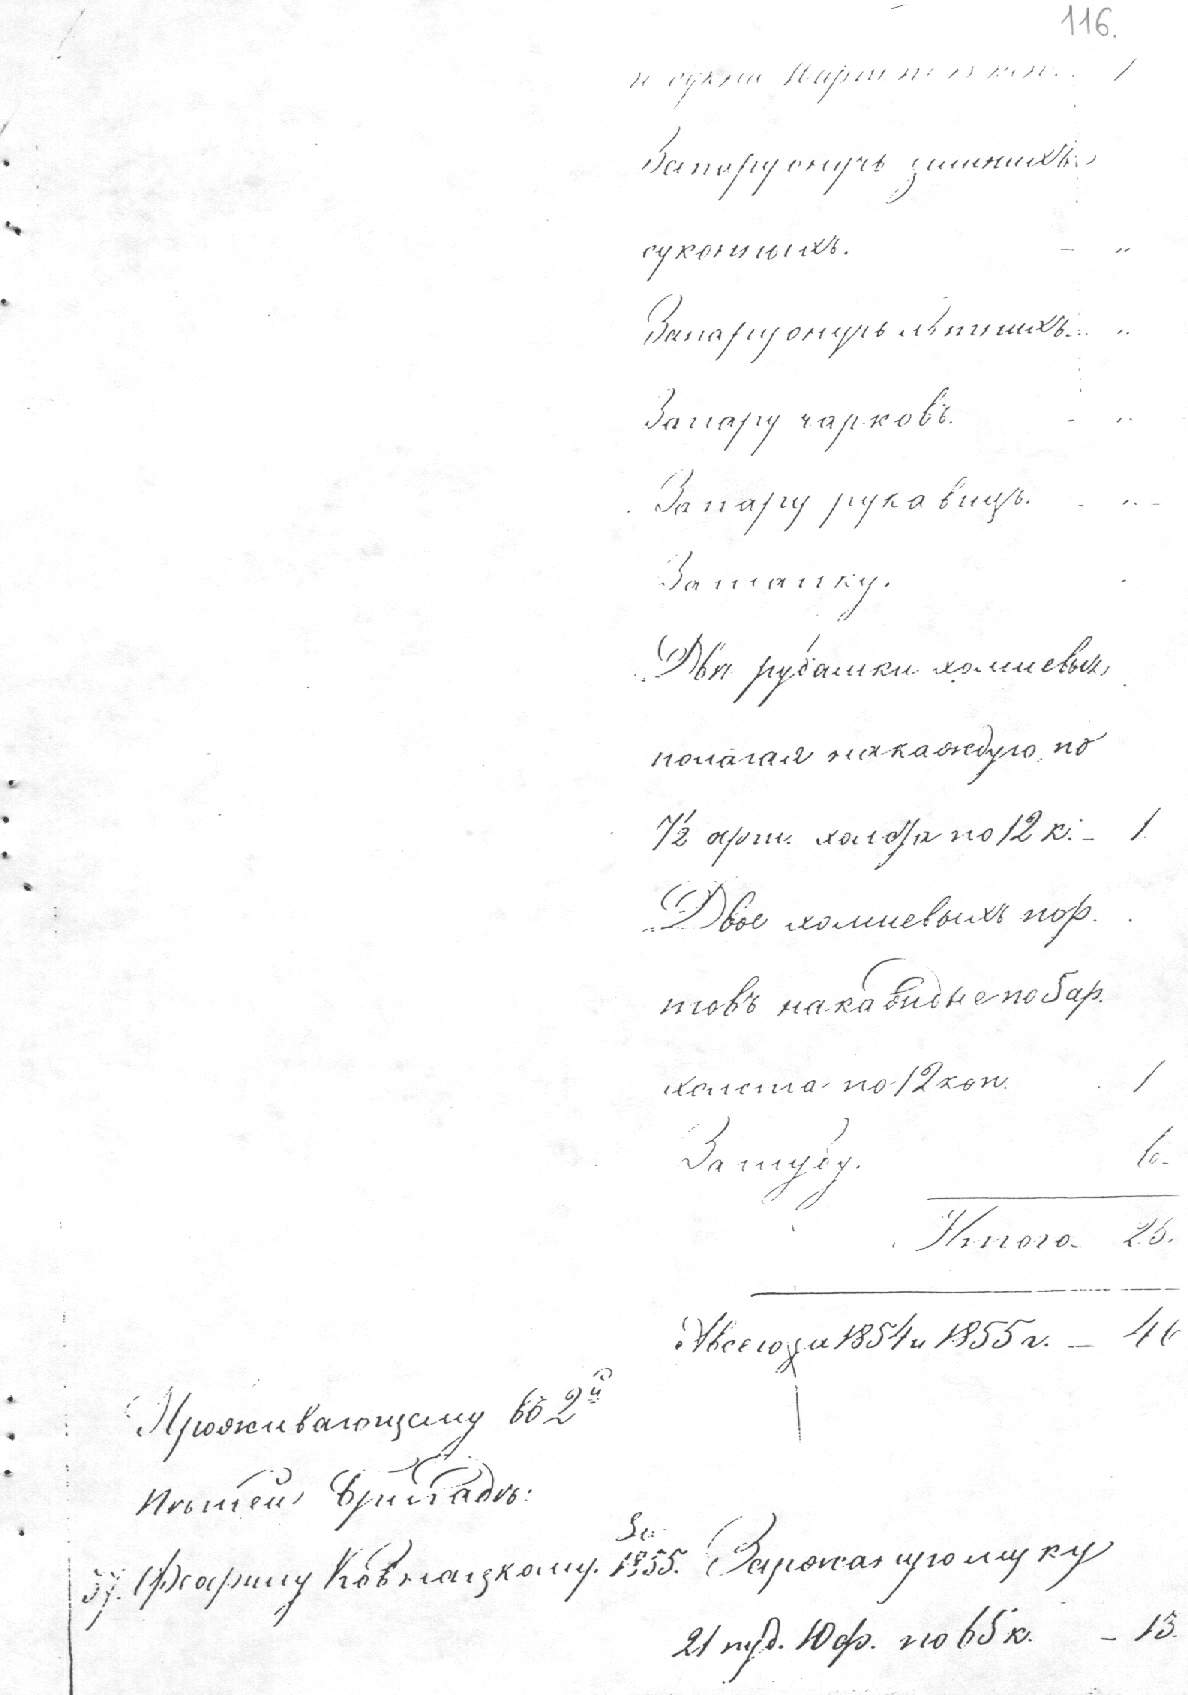 116.
и сукна 1
За пару онучь зимнихъ
суконныхъ. - "
За пару онучь лѣтнихъ "
За пару чарковъ. - "
За пару рукавицъ. - "
За шапку.
Двѣ рубашки холщевыя,
полагая на каждую по
7½ арш. холста по 12 к. - 1
Двое холщевыхъ пор-
товъ на каждые по 5 ар.
холста по 12 коп. 1
За шубу. 6
Итого 25.
А всего за 1854 и 1855 г. - 46
Проживающему въ 2й
пѣшей бригадѣ:
57. Флоарину Ковнацкому. За 1855. За ржаную муку
21 пуд. 10 ф. по 65 к. - 13